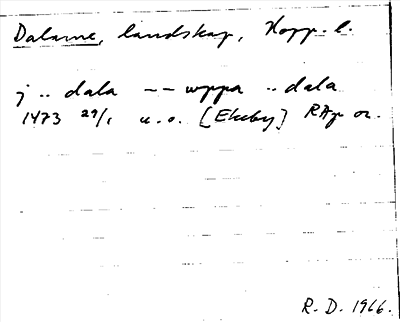 Dalarne, landskap, Kopp. l.
j .. dala -- wppa .. dala
1473 29/1 u. o. [Ekeby] RAp or.
R. D. 1966.